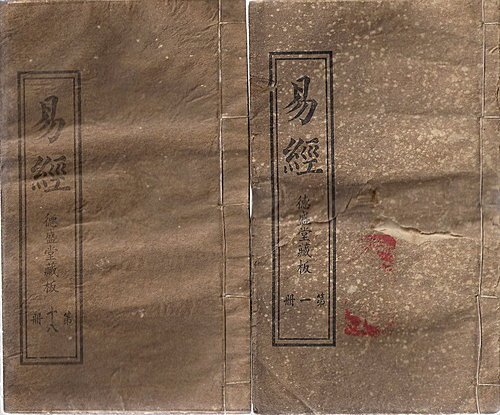 易經
德盛堂藏板
第十八册
易經
德盛堂藏板
第一册